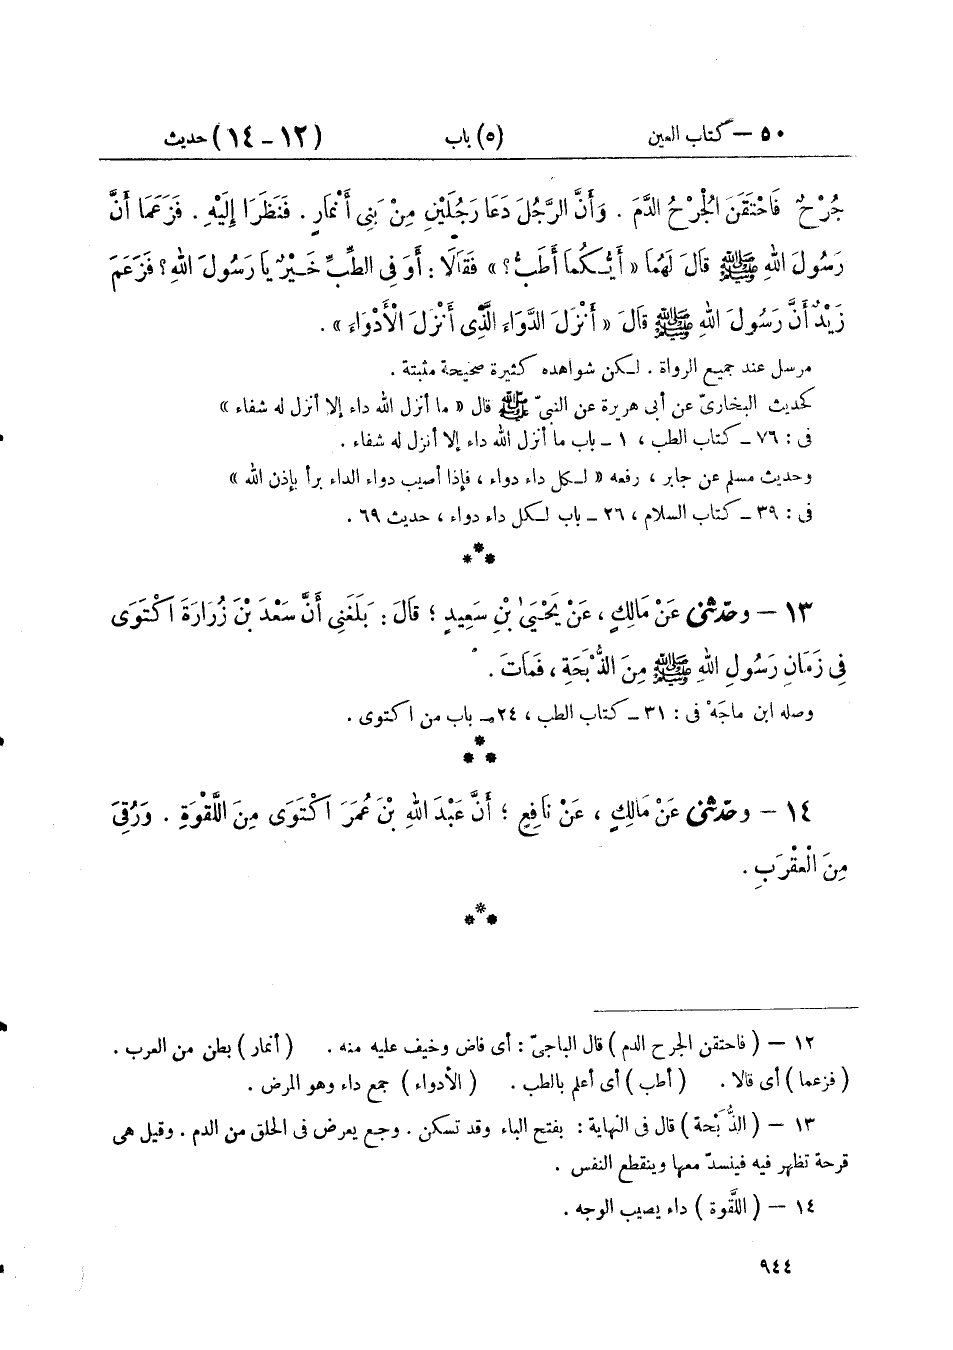 ٥٠ — كتاب العين (٥) باب (١٢ - ١٤) حديث
جُرْحٌ فَاحْتَقَنَ الْجُرْحُ الدَّمَ . وَأَنَّ الرَّجُلَ دَعَا رَجُلَيْنِ مِنْ بَنِى أَنْمَارٍ . فَنَظَرَا إِلَيْهِ . فَزَعَمَا أَنَّ
رَسُولَ اللهِ ﷺ قَالَ لَهُمَا « أَيُّكُمَا أَطَبُّ؟ » فَقَالَا : أَوَ فِى الطِّبِّ خَيْرٌ يَا رَسُولَ اللهِ؟ فَزَعَمَ
زَيْدٌ أَنَّ رَسُولَ اللهِ ﷺ قَالَ « أَنْزَلَ الدَّوَاءَ الَّذِى أَنْزَلَ الْأَدْوَاءَ » .
مرسل عند جميع الرواة . لكن شواهده كثيرة صحيحة مثبتة .
كحديث البخارىّ عن أبى هريرة عن النبىّ ﷺ قال « ما أنزل الله داء إلا أنزل له شفاء »
فى : ٧٦ ـ كتاب الطب ، ١ ـ باب ما أنزل الله داء إلا أنزل له شفاء .
وحديث مسلم عن جابر ، رفعه « لكل داء دواء ، فإذا أصيب دواء الداء برأ بإذن الله »
فى : ٣٩ ـ كتاب السلام ، ٢٦ ـ باب لكل داء دواء ، حديث ٦٩ .
***
١٣ – وحدّثنى عَنْ مَالِكٍ ، عَنْ يَحْيَىٰ بْنِ سَعِيدٍ ؛ قَالَ : بَلَغَنِى أَنَّ سَعْدَ بْنَ زُرَارَةَ اكْتَوَى
فِى زَمَانِ رَسُولِ اللهِ ﷺ مِنَ الذُّبَحَةِ ، فَمَاتَ .
وصله ابن ماجَهْ فى : ٣١ ـ كتاب الطب ، ٢٤ ـ باب من اكتوى .
***
١٤ – وحدّثنى عَنْ مَالِكٍ ، عَنْ نَافِعٍ ؛ أَنَّ عَبْدَ اللهِ بْنَ عُمَرَ اكْتَوَى مِنَ اللَّقْوَةِ . وَرُقِىَ
مِنَ الْعَقْرَبِ .
***
١٢ — ( فاحتقن الجرح الدم ) قال الباجىّ : أى فاض وخيف عليه منه . ( أنمار ) بطن من العرب .
( فزعما ) أى قالا . ( أطب ) أى أعلم بالطب . ( الأدواء ) جمع داء وهو المرض .
١٣ — ( الذُّبَحة ) قال فى النهاية : بفتح الباء وقد تسكن . وجع يعرض فى الحلق من الدم . وقيل هى
قرحة تظهر فيه فينسدّ معها وينقطع النفس .
١٤ — ( اللَّقوة ) داء يصيب الوجه .
٩٤٤